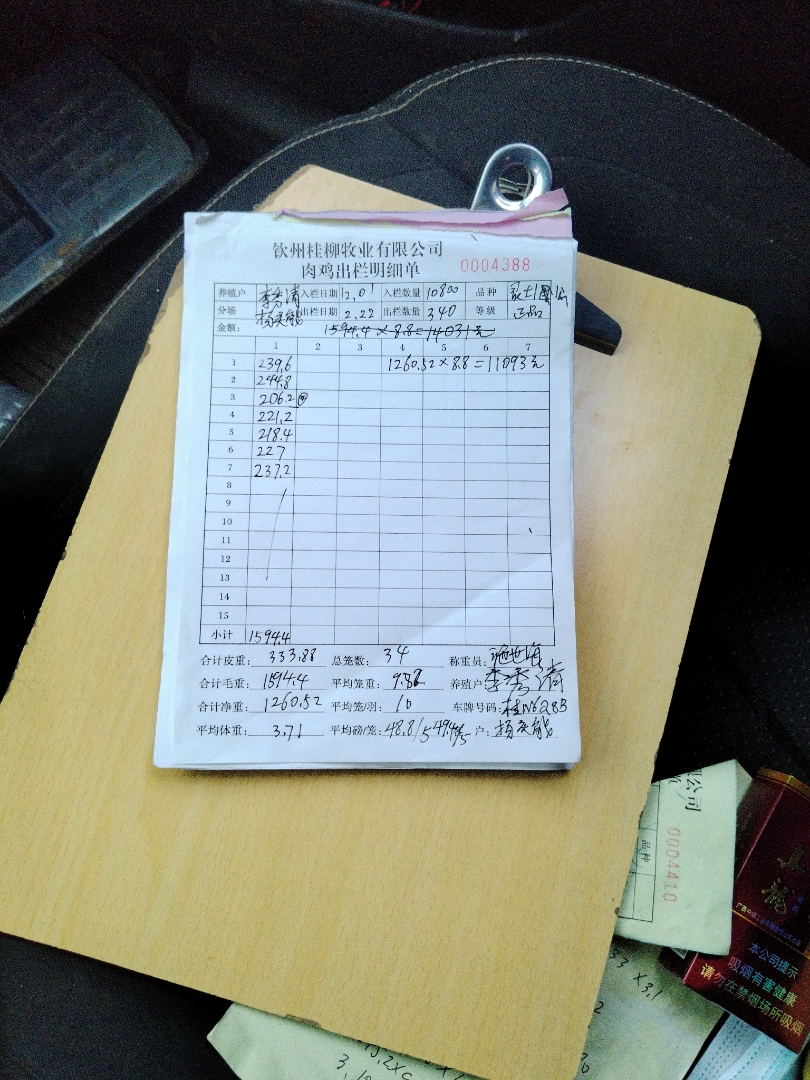 钦州桂柳牧业有限公司
肉鸡出栏明细单 0004388
养殖户 李秀清 入栏日期 12.01 入栏数量 10800 品种
分场 杨庆能 出栏日期 2.22 出栏数量 340 等级 正品
金额: 1594.4×8.8=14031元
1 2 3 4 5 6 7
1 239.6 1260.52×8.8=11093元
2 244.8
3 206.2
4 221.2
5 218.4
6 227
7 237.2
8
9
10
11
12
13
14
15
小计 1594.4
合计皮重: 333.88 总笼数: 34 称重员:
合计毛重: 1594.4 平均笼重: 9.82 养殖户: 李秀清
合计净重: 1260.52 平均笼/羽: 10 车牌号码: 桂N6283
平均体重: 3.71 平均磅/笼: 48.8/5 49.4/5 户: 杨庆能
限公司
品种
0004410
真龙
本公司提示
吸烟有害健康
请勿在禁烟场所吸烟
33×3.1